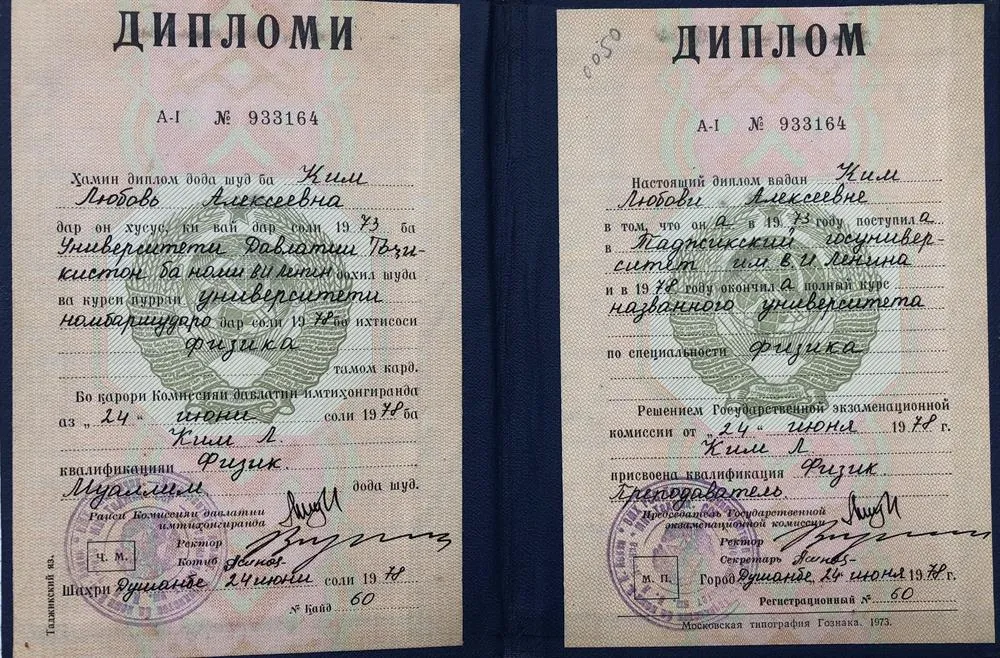 ДИПЛОМИ
А-I № 933164
Ҳамин диплом дода шуд ба Ким
Любовь Алексеевна
дар он хусус, ки вай дар соли 1973 ба
Университети Давлатии Тоҷи-
кистон ба номи ВИ Ленин дохил шуда
ва курси пурраи университети
номбаршударо дар соли 1978 бо ихтисоси
физика
тамом кард.
Бо қарори Комиссияи давлатии имтиҳонгиранда
аз „24“ июни соли 1978 ба
Ким Л.
квалификацияи Физик.
Муаллим. дода шуд.
Раиси Комиссияи давлатии
имтиҳонгиранда
Ректор
Котиб
Ч. М.
Шаҳри Душанбе 24 июни соли 1978
№ Қайд 60
Таджикский яз.
0050
ДИПЛОМ
А-I № 933164
Настоящий диплом выдан Ким
Любови Алексеевне
в том, что она в 1973 году поступила
в Таджикский госунивер-
ситет им В И Ленина
и в 1978 году окончила полный курс
названного университета
по специальности физика
Решением Государственной экзаменационной
комиссии от „24“ июня 1978 г.
Ким Л.
присвоена квалификация Физик
Преподаватель.
Председатель Государственной
экзаменационной комиссии
Ректор
Секретарь
М. П.
Город Душанбе, 24 июня 1978 г.
Регистрационный № 60
Московская типография Гознака. 1973.